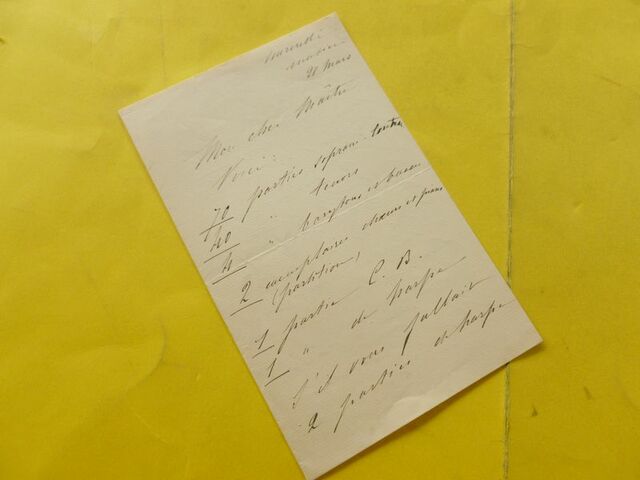 20 Mars
Mon cher Maître
Voici :
70 parties soprani-contra
40 " tenors
4 " barytons et basses
2 exemplaires chœur et piano
(partition)
1 partie C. B.
1 " de harpe
S'il vous fallait
2 parties de harpe